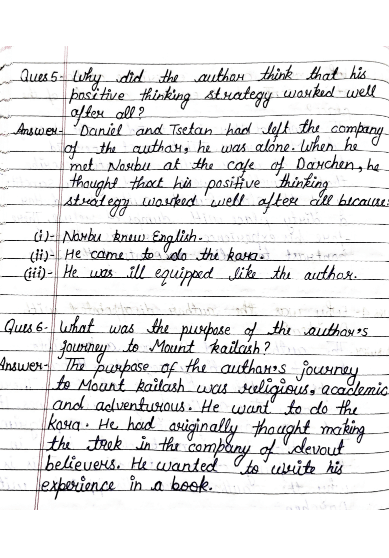 Ques 5- Why did the author think that his
positive thinking strategy worked well
after all?
Answer- Daniel and Tsetan had left the company
of the author, he was alone. When he
met Norbu at the cafe of Darchen, he
thought that his positive thinking
strategy worked well after all because:
(i)- Norbu knew English.
(ii)- He came to do the kora.
(iii)- He was ill equipped like the author.
Ques 6- What was the purpose of the author's
journey to Mount kailash?
Answer- The purpose of the author's journey
to Mount kailash was religious, academic
and adventurous. He want to do the
kora. He had originally thought making
the trek in the company of devout
believers. He wanted to write his
experience in a book.